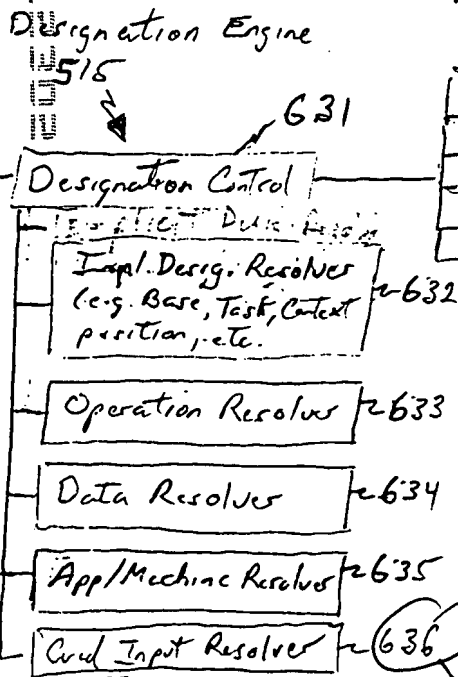 Designation Engine
515
631
Designation Control
Impl. Desig. Resolver
(e.g. Base, Task, Context
position, etc.
632
Operation Resolver
633
Data Resolver
634
App/Machine Resolver
635
Input Resolver
636